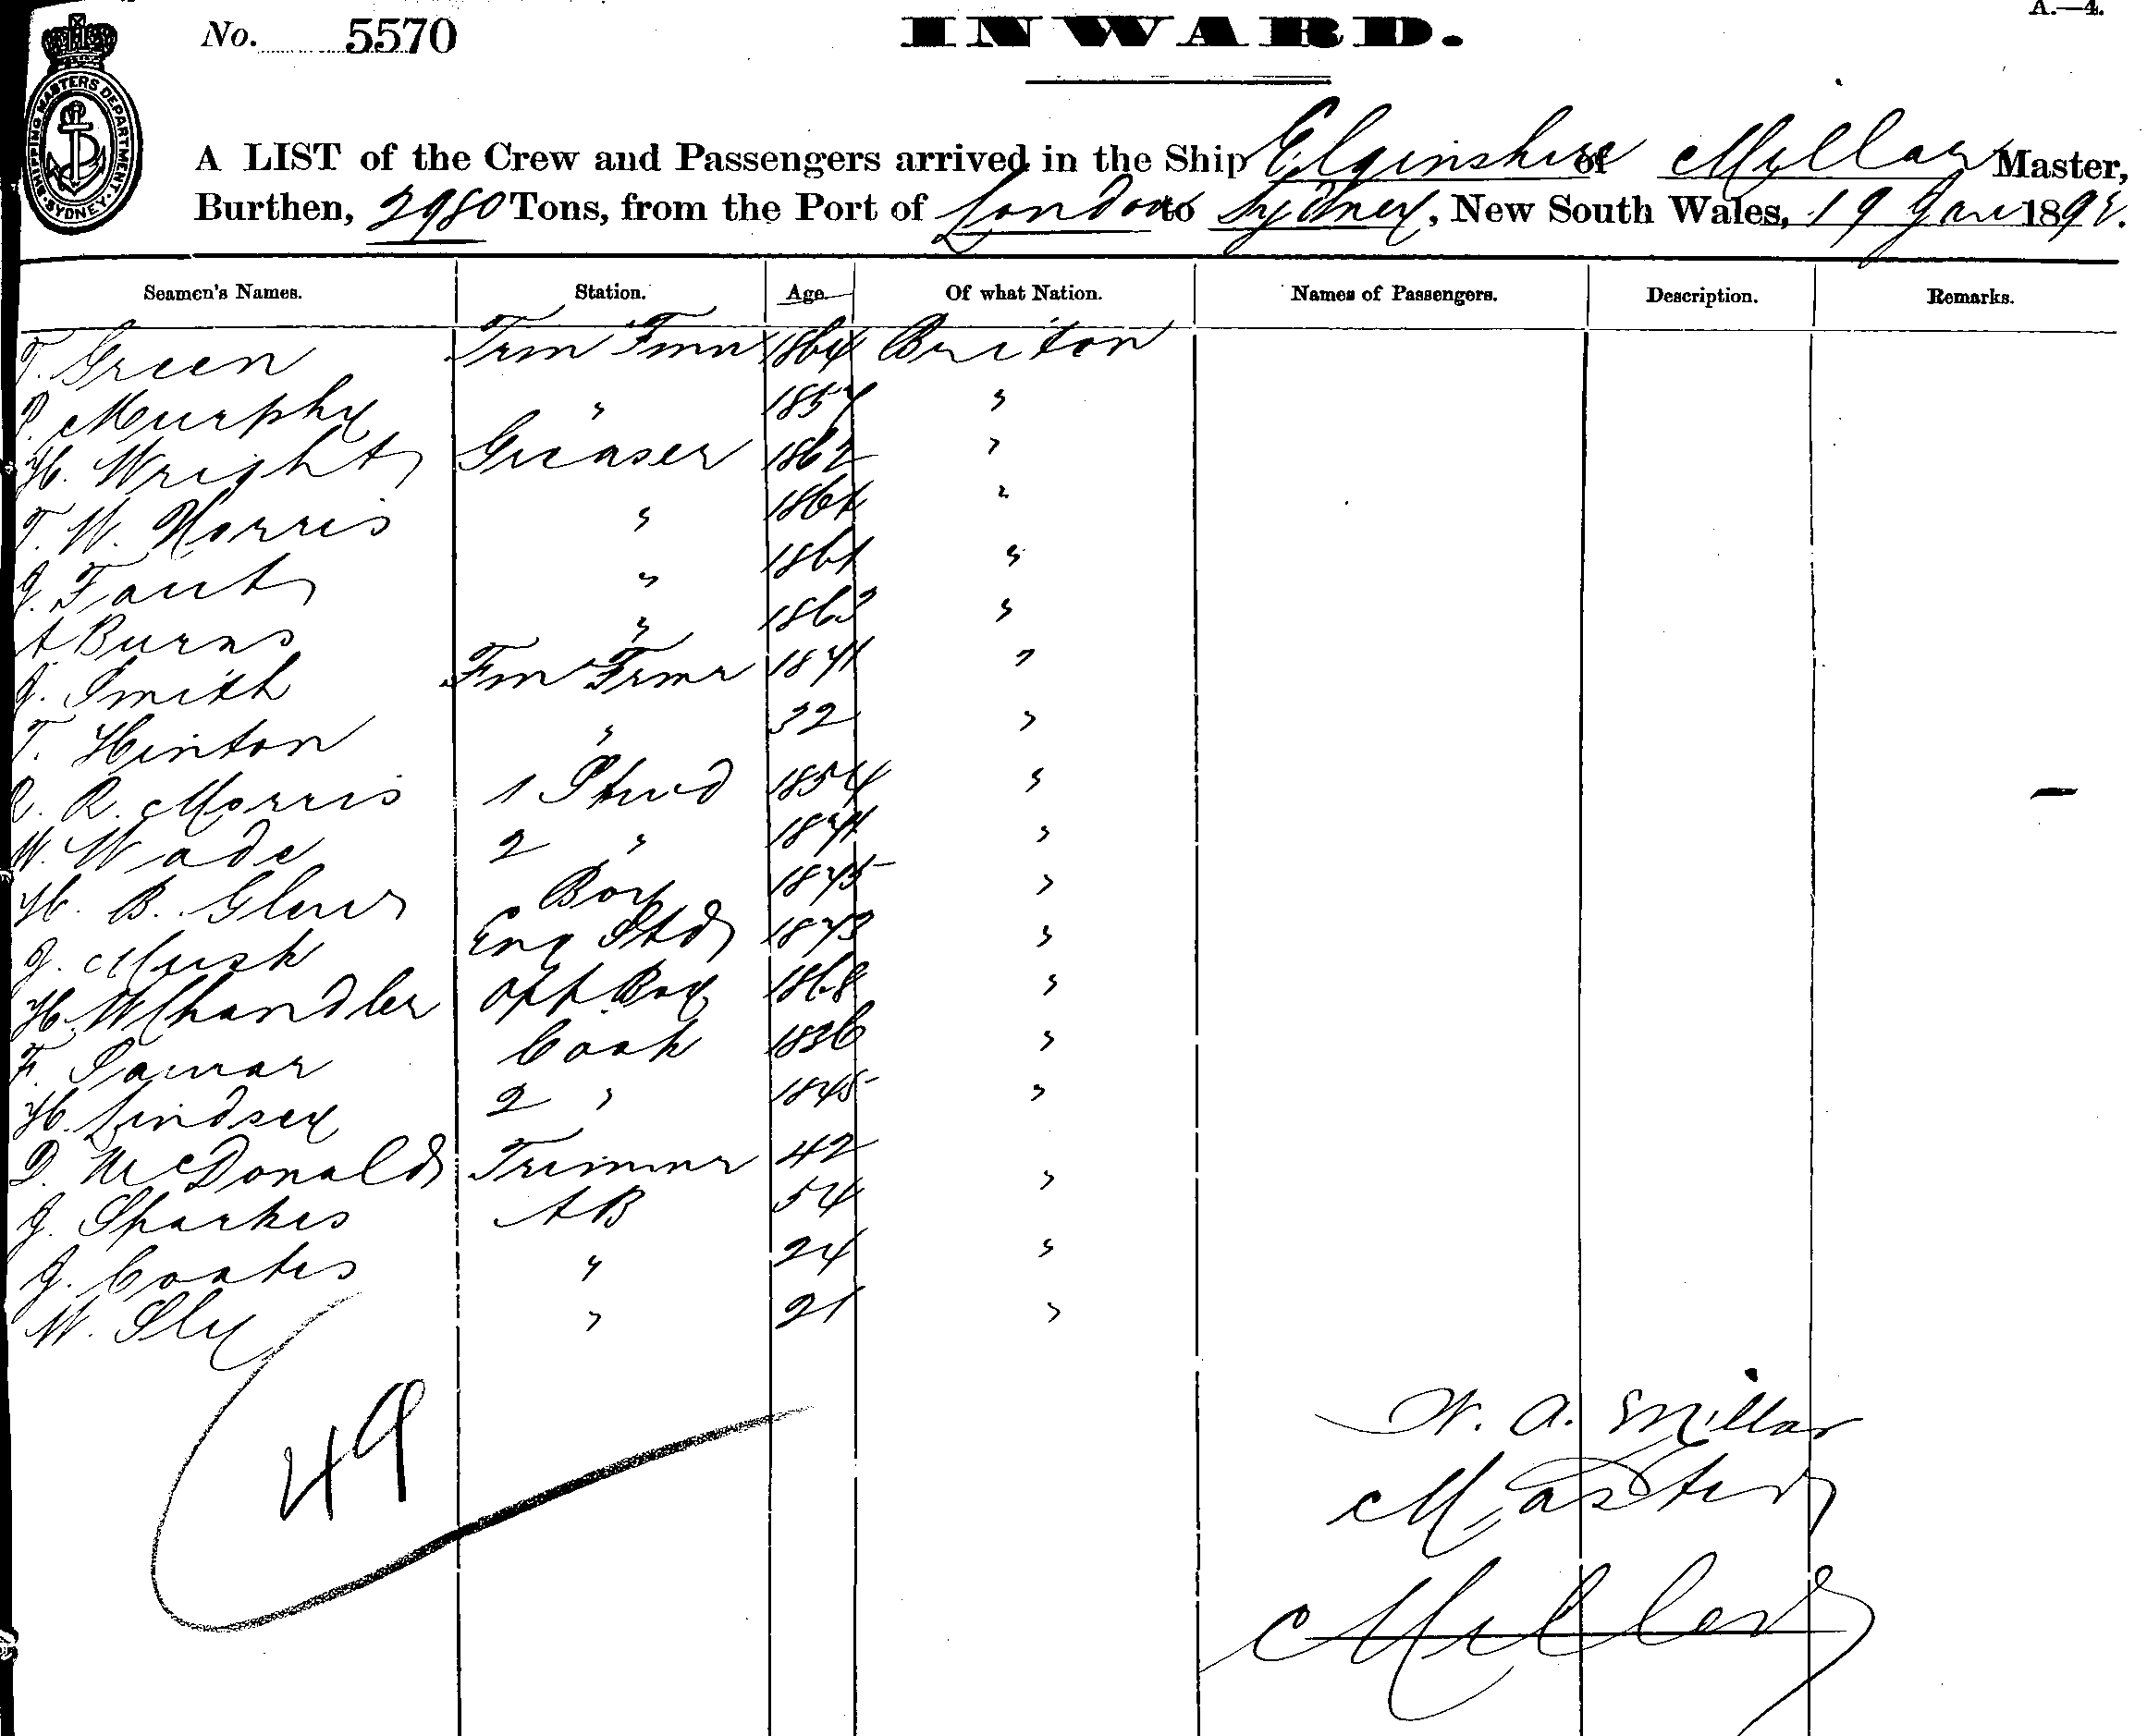 A.—4.
No. 5570 INWARD.
SHIPPING MASTERS DEPARTMENT SYDNEY
A LIST of the Crew and Passengers arrived in the Ship Elginshire of Millar Master,
Burthen, 2980 Tons, from the Port of London to Sydney, New South Wales, 19 Jan 189
Seamen's Names. Station. Age Of what Nation. Names of Passengers. Description. Remarks.
T. Green Trm Fmn 1864 Briton
P. Murphy " 1857 "
H. Wright Greaser 1862 "
T. W. Norris " 1864 "
J. " 1861 "
A Burns " 1863 "
J. Smith Fm Trmr 1871 "
T. Hinton " 32 "
R. R. Morris 1 Stwd 1854 "
W. Wade 2 " 1874 "
H. B. Boy 1875 "
J. Musk Eng Std 1873 "
H. W Chandler Off Boy 1868 "
F. Cook 1836 "
H. Lindsey 2 " 1845 "
D. McDonald Trimmr 42
J. Sparkes AB 54 "
J. Coates " 24 "
W. Sly " 21 "
49
W. A. Millar
Master
Miller